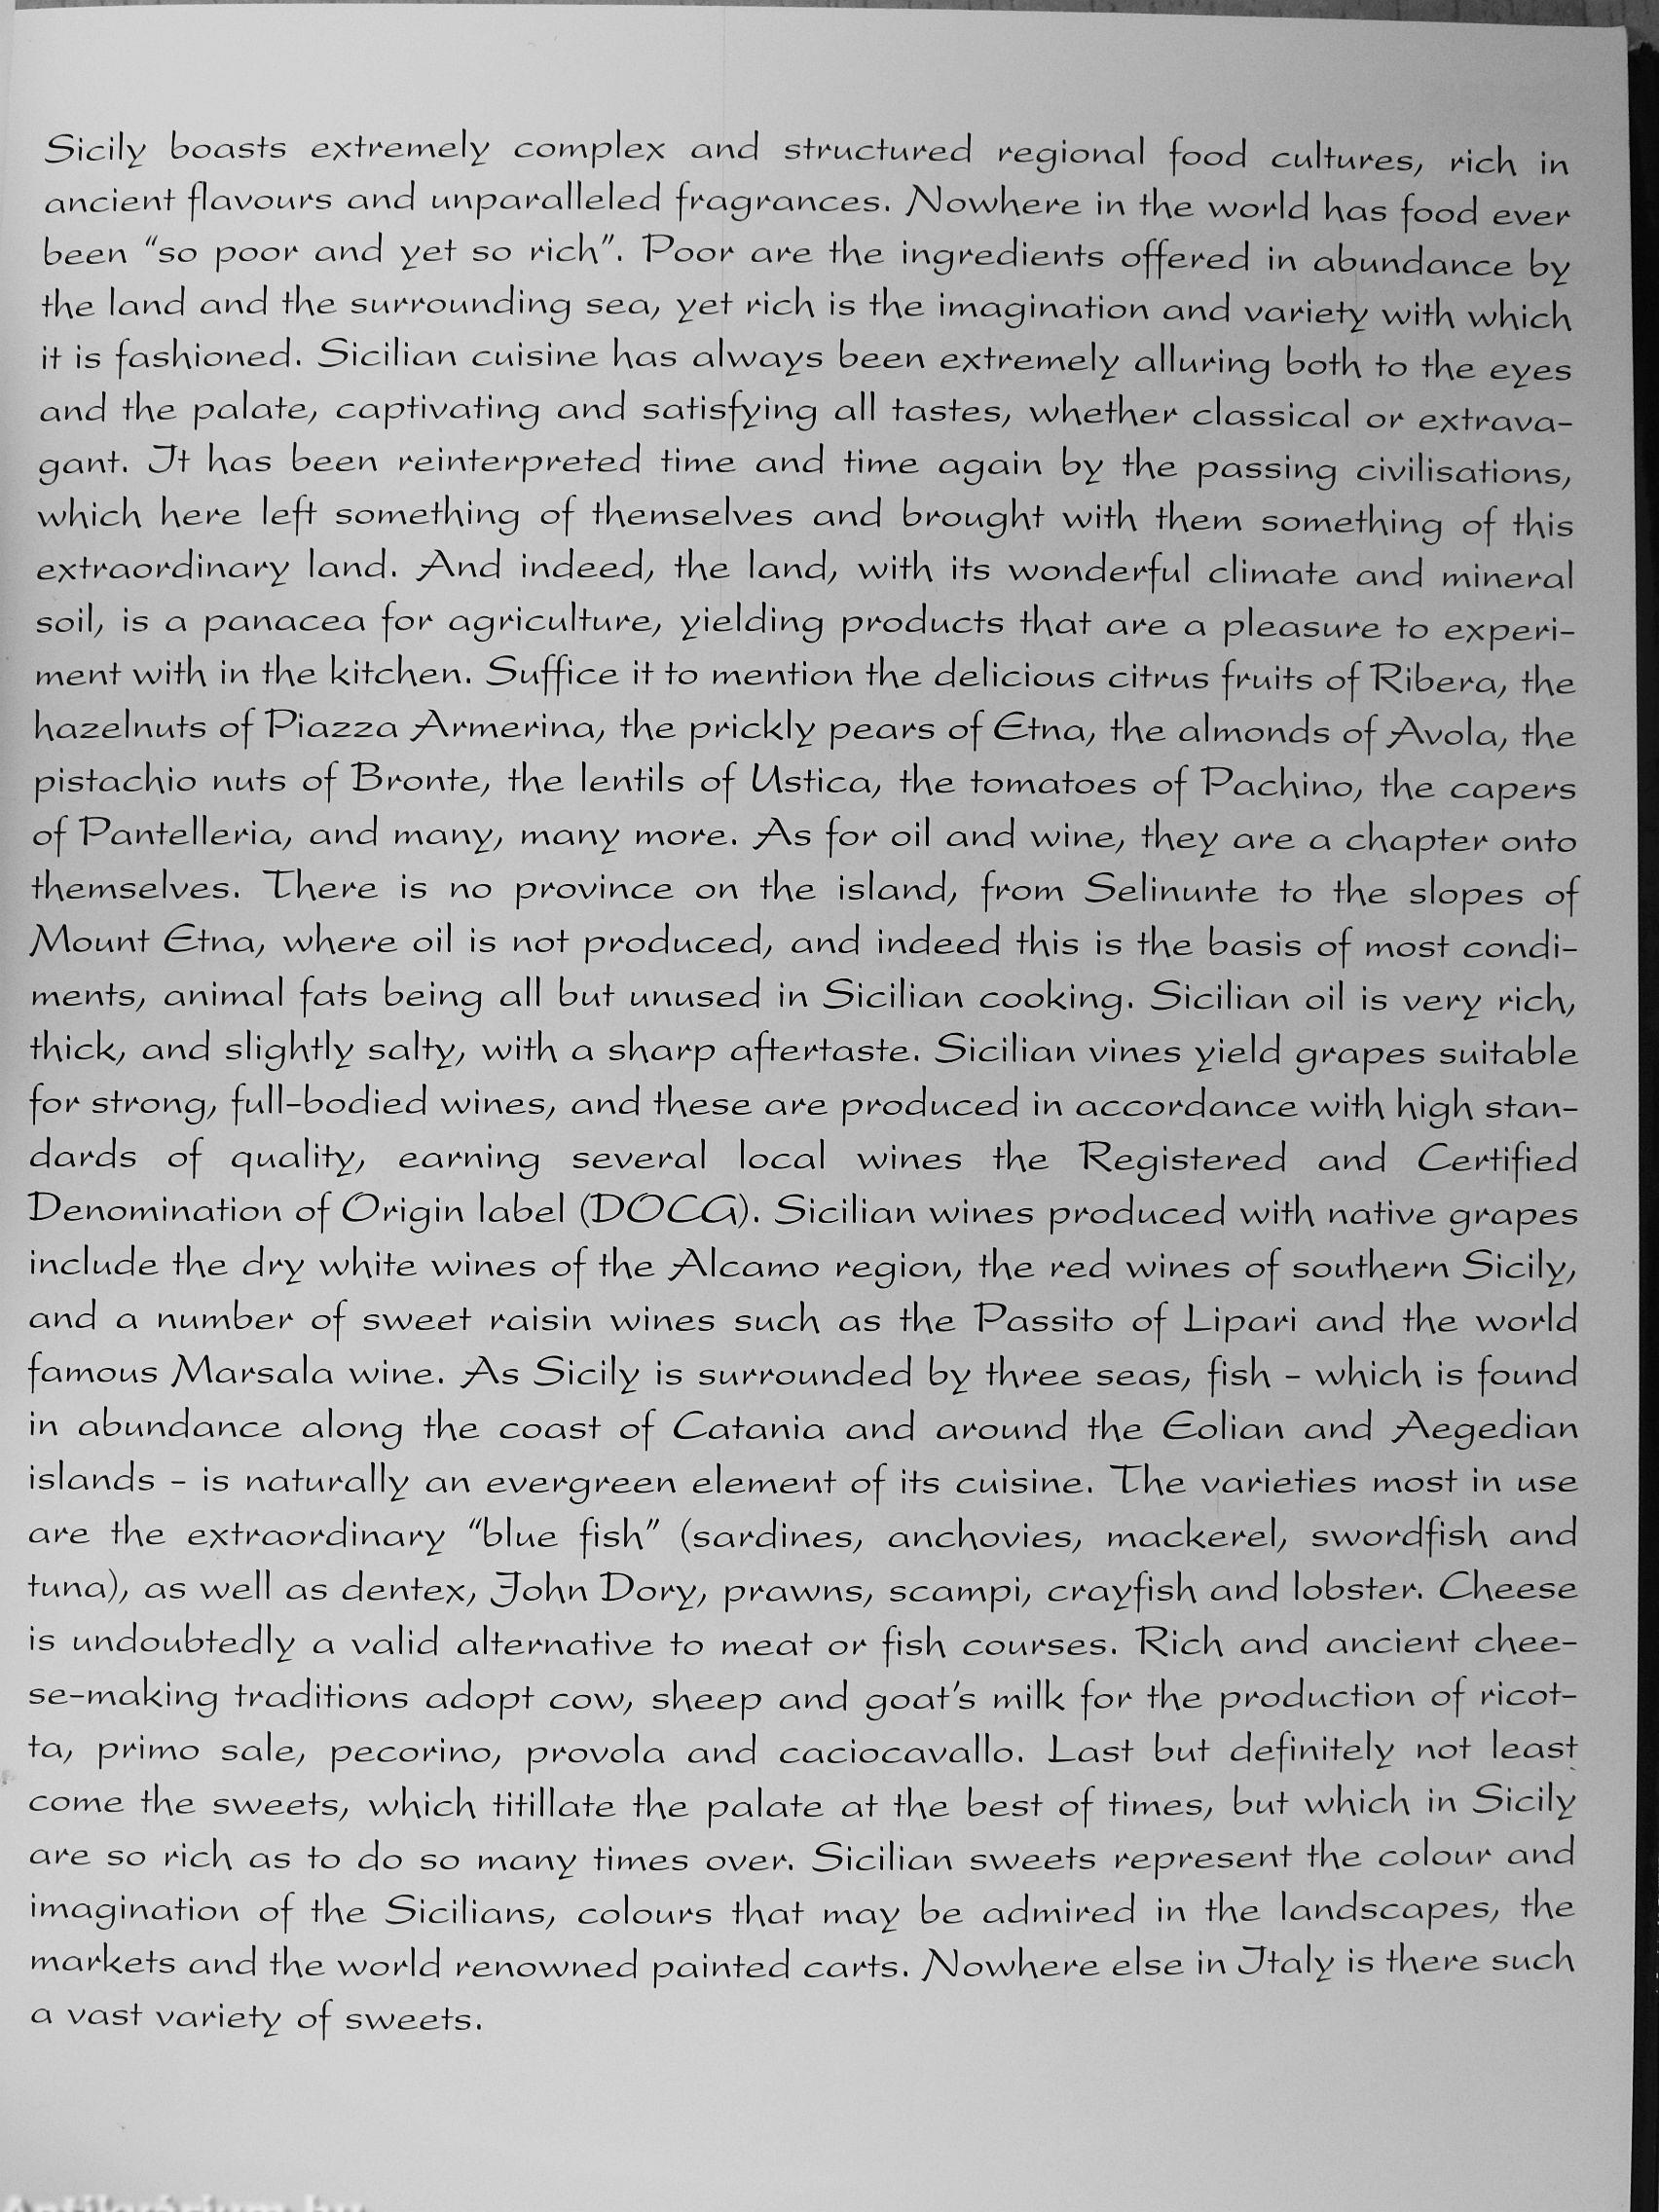 Sicily boasts extremely complex and structured regional food cultures, rich in
ancient flavours and unparalleled fragrances. Nowhere in the world has food ever
been “so poor and yet so rich”. Poor are the ingredients offered in abundance by
the land and the surrounding sea, yet rich is the imagination and variety with which
it is fashioned. Sicilian cuisine has always been extremely alluring both to the eyes
and the palate, captivating and satisfying all tastes, whether classical or extrava-
gant. It has been reinterpreted time and time again by the passing civilisations,
which here left something of themselves and brought with them something of this
extraordinary land. And indeed, the land, with its wonderful climate and mineral
soil, is a panacea for agriculture, yielding products that are a pleasure to experi-
ment with in the kitchen. Suffice it to mention the delicious citrus fruits of Ribera, the
hazelnuts of Piazza Armerina, the prickly pears of Etna, the almonds of Avola, the
pistachio nuts of Bronte, the lentils of Ustica, the tomatoes of Pachino, the capers
of Pantelleria, and many, many more. As for oil and wine, they are a chapter onto
themselves. There is no province on the island, from Selinunte to the slopes of
Mount Etna, where oil is not produced, and indeed this is the basis of most condi-
ments, animal fats being all but unused in Sicilian cooking. Sicilian oil is very rich,
thick, and slightly salty, with a sharp aftertaste. Sicilian vines yield grapes suitable
for strong, full-bodied wines, and these are produced in accordance with high stan-
dards of quality, earning several local wines the Registered and Certified
Denomination of Origin label (DOCG). Sicilian wines produced with native grapes
include the dry white wines of the Alcamo region, the red wines of southern Sicily,
and a number of sweet raisin wines such as the Passito of Lipari and the world
famous Marsala wine. As Sicily is surrounded by three seas, fish - which is found
in abundance along the coast of Catania and around the Eolian and Aegedian
islands - is naturally an evergreen element of its cuisine. The varieties most in use
are the extraordinary “blue fish” (sardines, anchovies, mackerel, swordfish and
tuna), as well as dentex, John Dory, prawns, scampi, crayfish and lobster. Cheese
is undoubtedly a valid alternative to meat or fish courses. Rich and ancient chee-
se-making traditions adopt cow, sheep and goat’s milk for the production of ricot-
ta, primo sale, pecorino, provola and caciocavallo. Last but definitely not least
come the sweets, which titillate the palate at the best of times, but which in Sicily
are so rich as to do so many times over. Sicilian sweets represent the colour and
imagination of the Sicilians, colours that may be admired in the landscapes, the
markets and the world renowned painted carts. Nowhere else in Italy is there such
a vast variety of sweets.